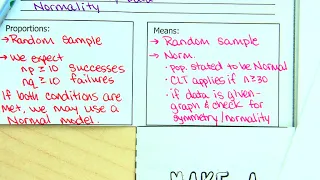 Normality
Proportions:
→ Random sample
→ We expect
np ≥ 10 successes
nq ≥ 10 failures
If both conditions are
met, we may use a
Normal model.
Means:
→ Random sample
→ Norm.
• Pop. stated to be Normal
• CLT applies if n≥30
• if data is given-
graph & check for
symmetry/normality
MAKE A